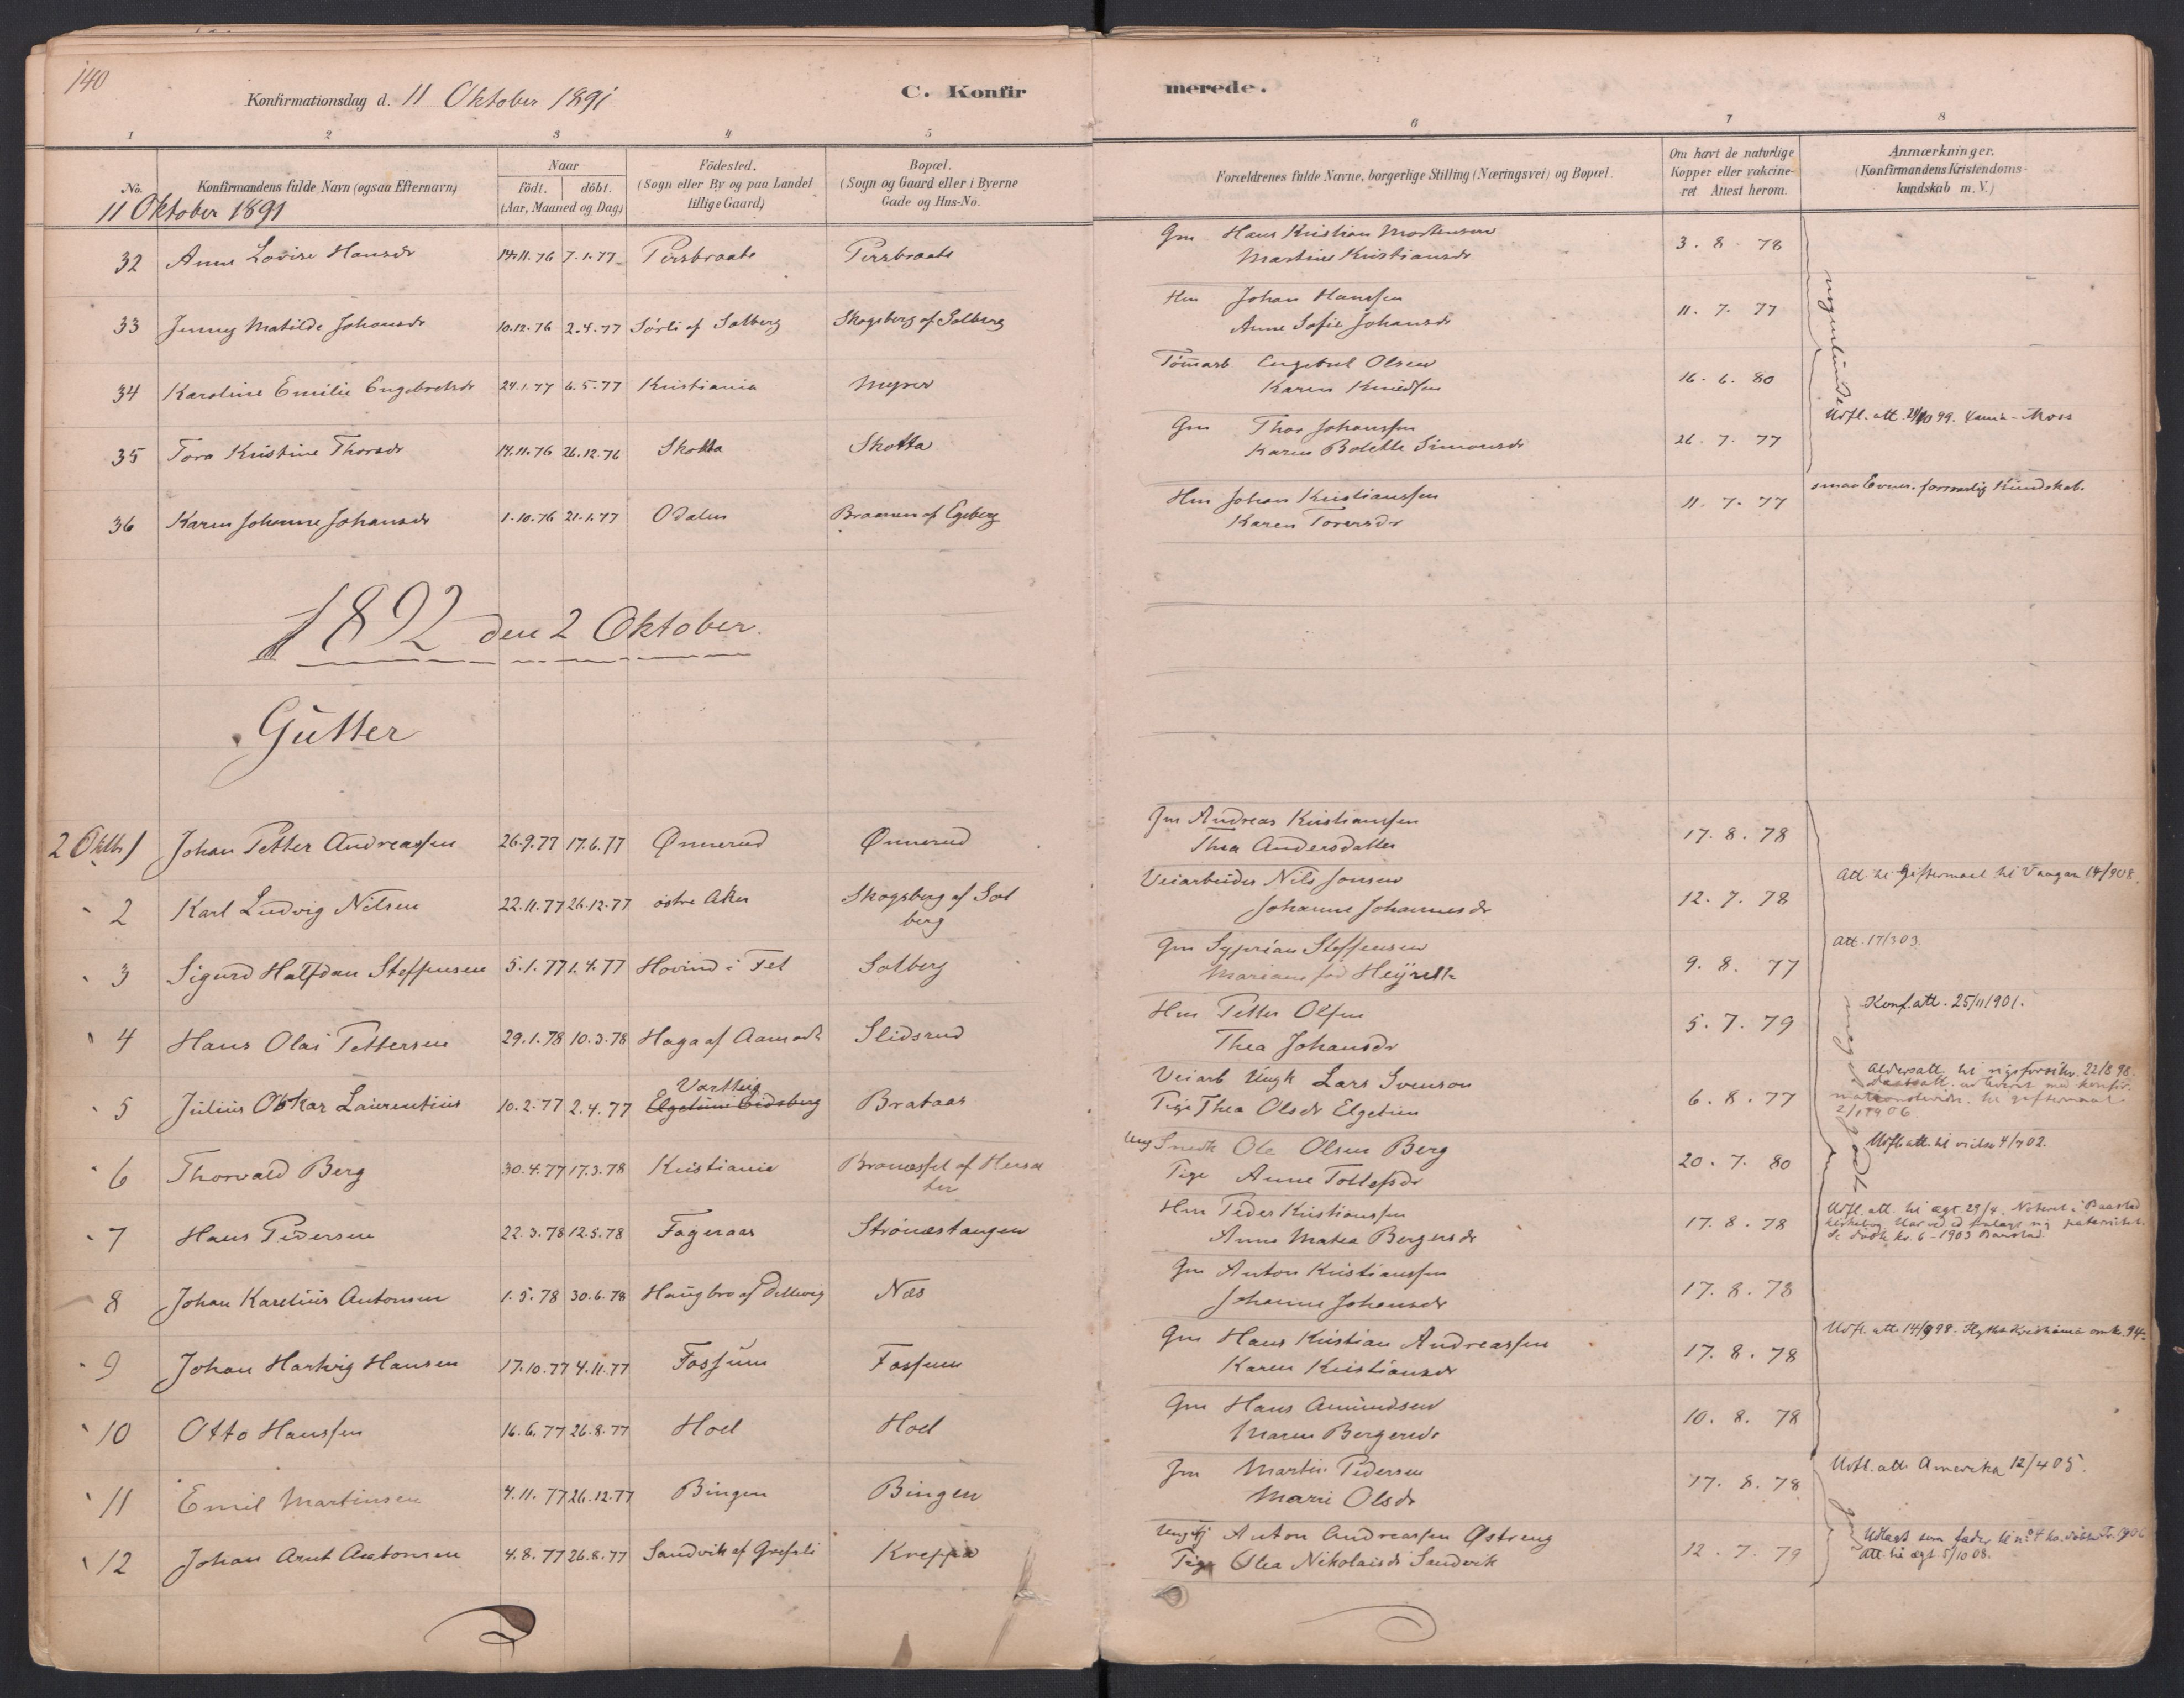 140
Konfirmationsdag d. 11 Oktober 1891
C. Konfirmerede.
1 2 3 4 5 6 7 8
No.
Konfirmandens fulde Navn (ogsaa Efternavn)
Naar
födt. döbt.
(Aar, Maaned og Dag)
Födested.
(Sogn eller By og paa Landet
tillige Gaard)
Bopæl.
(Sogn og Gaard eller i Byerne
Gade og Hus-No.
Forældrenes fulde Navne, borgerlige Stilling (Næringsvei) og Bopæl.
Om havt de naturlige
Kopper eller vakcine-
ret Attest herom.
Anmærkninger.
(Konfirmandens Kristendoms-
kundskab m. V.)
11 Oktober 1891
32 Anne Lovise Hansdr 14.11.76 7.1.77 Persbraate Persbraate Gm Hans Kristian Mortensen 3. 8. 78
Martine Kristiansdr
33 Jenny Matilde Johansdr 10.12.76 2.4.77 Sørli af Solberg Skogsberg af Solberg Hm Johan Hanssen 11. 7. 77
Anne Sofie Johansdr
34 Karoline Emilie Engebretsdr 24.1.77 6.5.77 Kristiania Myrer Tömarb Engebret Olsen 16. 6. 80
Karen
Udfl. att. 99. Moss
35 Tora Kristine Thorsdr 14.11.76 26.12.76 Skotta Skotta Gm Thor Johanssen 26. 7. 77
Karen Bolette Simonsdr
36 Karen Johanne Johansdr 1.10.76 21.1.77 Odalen Braaten af Egeberg Hm Johan Kristianssen 11. 7. 77 smaa Evner. Kundskab.
Karen Torersdr
1892 den 2 Oktober.
Gutter
2 Oktb 1 Johan Petter Andreassen 26.9.77 17.6.77 Ønnerud Ønnerud Jm Andreas Kristianssen 17. 8. 78
Thea Andersdatter
2 Karl Ludvig Nilsen 22.11.77 26.12.77 østre Aker Skogsberg af Sol
berg
Veiarbeider Nils Jonsen 12. 7. 78 Att. til Giftermaal til Vaagan 14/908.
Johanne Johannesdr
3 Sigurd Halfdan Steffensen 5.1.77 1.4.77 Hovind i Fet Solberg Gm Syprian Steffensen 9. 8. 77 Att. 17/303.
Mariane fød
4 Hans Olai Pettersen 29.1.78 10.3.78 Haga af Aamodt Slidsrud Hm Petter Olsen 5. 7. 79 Konf. att. 25/11 1901.
Thea Johansdr
5 Julius Oskar Laurentius 10.2.77 2.4.77 Varteig
Elgetun Eidsberg Brataas Veiarb Ungk Lars Svenson 6. 8. 77
Pige Thea Olsdr Elgetun
Aldersatt. til 22/8 98.
2/1 1906.
6 Thorvald Berg 30.4.77 17.3.78 Kristiania Ung Snedk Ole Olsen Berg 20. 7. 80 Udfl. att. til 4/702.
Pige Anne Tollefsdr
7 Hans Pedersen 22.3.78 12.5.78 Fageraas Strönæstangen Hm Peder Kristianssen 17. 8. 78
Anne Matea Bergersdr
Udfl. att. til ægt. 29/4. Noteret i Baastad
8 Johan Karelius Antonsen 1.5.78 30.6.78 Haugbro af Næs Gm Anton Kristianssen 17. 8. 78
Johanne Johansdr
9 Johan Hartvig Hansen 17.10.77 4.11.77 Fossum Fossum Gm Hans Kristian Andreassen 17. 8. 78 Udfl. att. 14/9 98. Kristiania 94.
Karen Kristiansdr
10 Otto Hanssen 16.6.77 26.8.77 Hoel Hoel Gm Hans Amundsen 10. 8. 78
Maren Bergersdr
11 Emil Martinsen 4.11.77 26.12.77 Bingen Bingen Jm Martin Pedersen 17. 8. 78 Udfl. att. Amerika 12/4 05.
Marie Olsdr
12 Johan Arnt Antonsen 4.8.77 26.8.77 Sandvik af Kreppa Anton Andreassen Østreng 12. 7. 79
Pige Olea Nikolaisdr Sandvik
Udlagt som fader til
att. til ægt. 5/10 08.